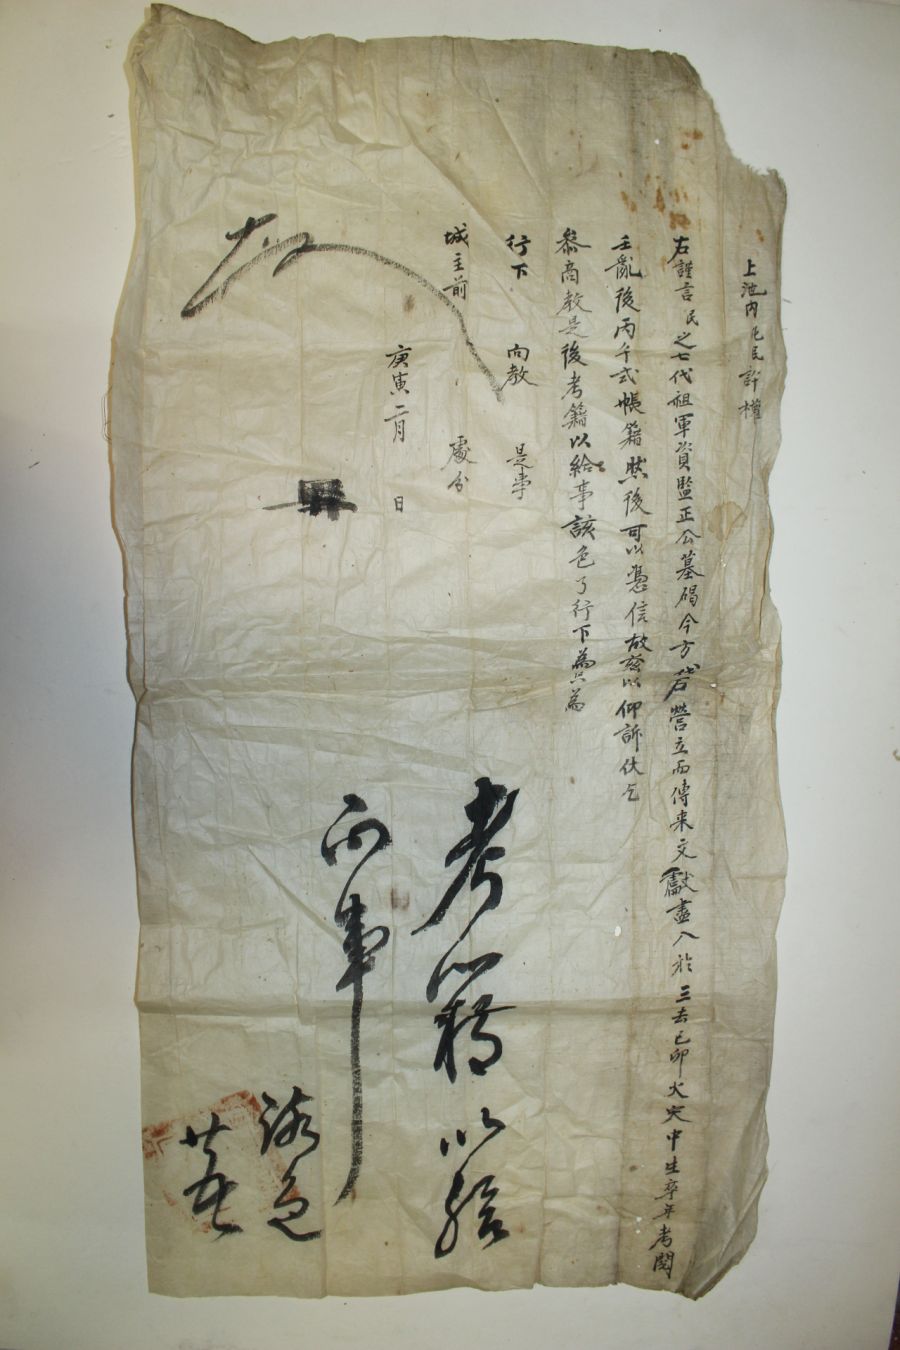 上池內化民許權
右謹言民之七代祖軍資監正公墓碣今方伐石營立而傳来文獻盡入於三去己卯火灾中生卒年考閱
壬亂後丙午式帳籍然後可以憑信故玆以仰訴伏乞
叅商敎是後考籍以給事該色了行下爲只爲
行下 向敎 是事
城主前 處分
庚寅二月 日
考籍以給
向事
該色
廿五